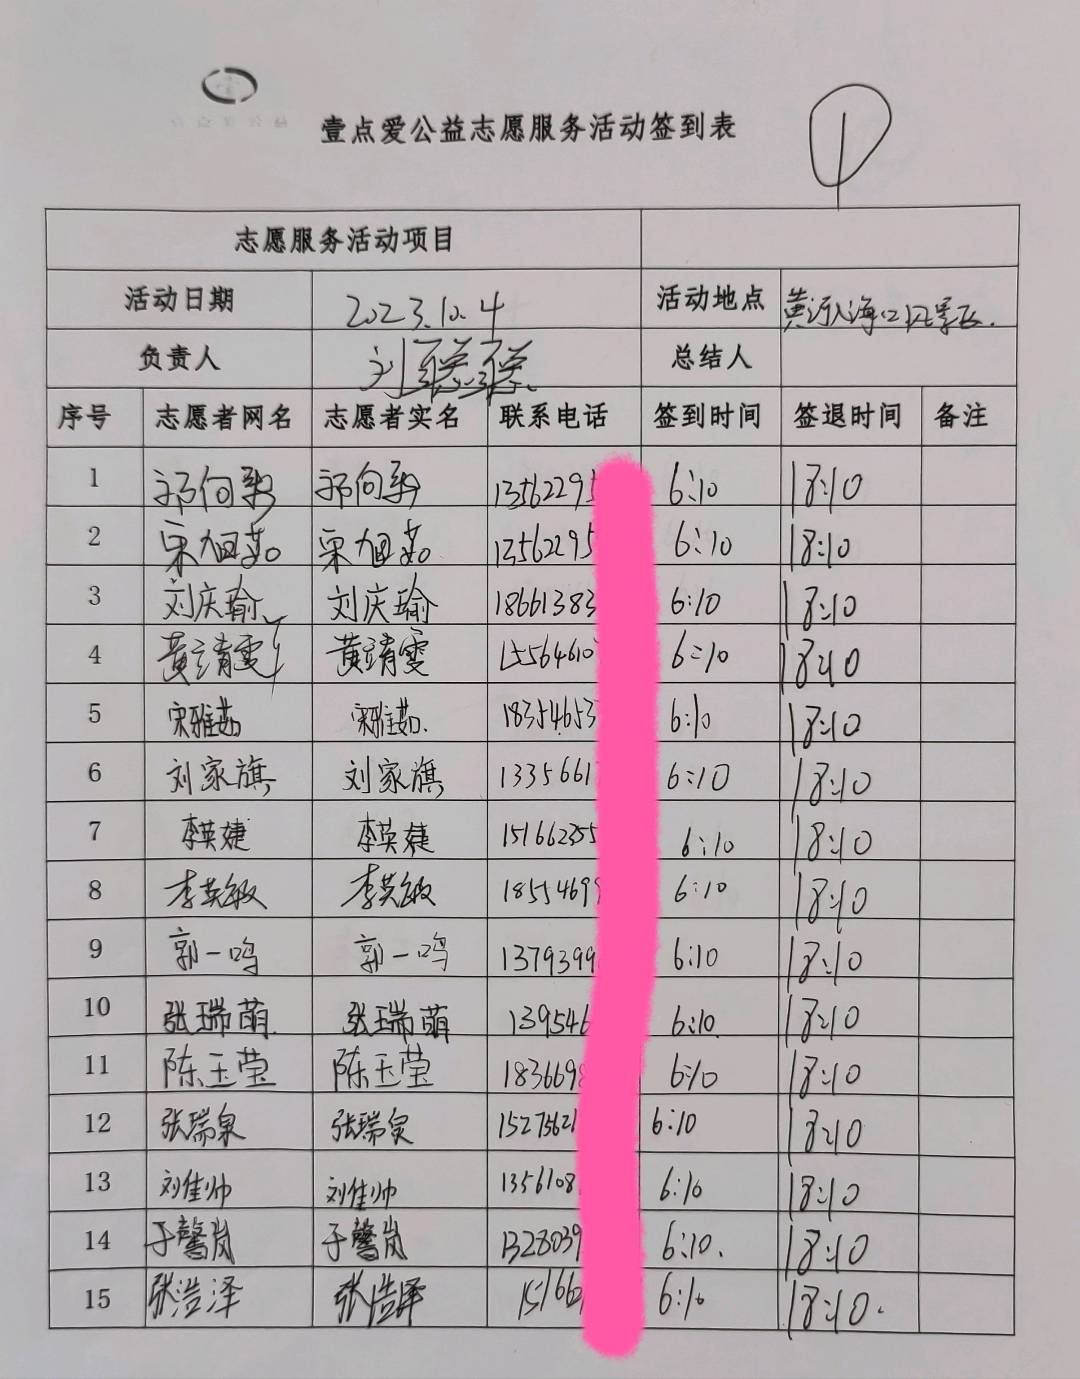 壹点爱公益志愿服务活动签到表
1
志愿服务活动项目
活动日期 2023.10.4 活动地点 黄河入海口风景区.
负责人 刘聪聪. 总结人
序号 志愿者网名 志愿者实名 联系电话 签到时间 签退时间 备注
1 祁向 祁向 13562295 6:10 18:10
2 宋旭茹 宋旭茹 13562295 6:10 18:10
3 刘庆瑜 刘庆瑜 18661383 6:10 18:10
4 黄靖雯 黄靖雯 15564610 6:10 18:10
5 宋雅茹 宋雅茹. 18354653 6:10 18:10
6 刘家旗 刘家旗 1335661 6:10 18:10
7 李英婕 李英婕 15166255 6:10 18:10
8 李英敏 李英敏 1855469 6:10 18:10
9 郭一鸣 郭一鸣 1379399 6:10 18:10
10 张瑞萌. 张瑞萌 139546 6:10. 18:10
11 陈玉莹 陈玉莹 183669 6:10 18:10
12 张瑞泉 张瑞泉 15273621 6:10 18:10
13 刘佳帅 刘佳帅 1356108 6:10 18:10
14 于馨岚 于馨岚 1328039 6:10. 18:10
15 张浩泽 张浩泽 15166 6:10 18:10.